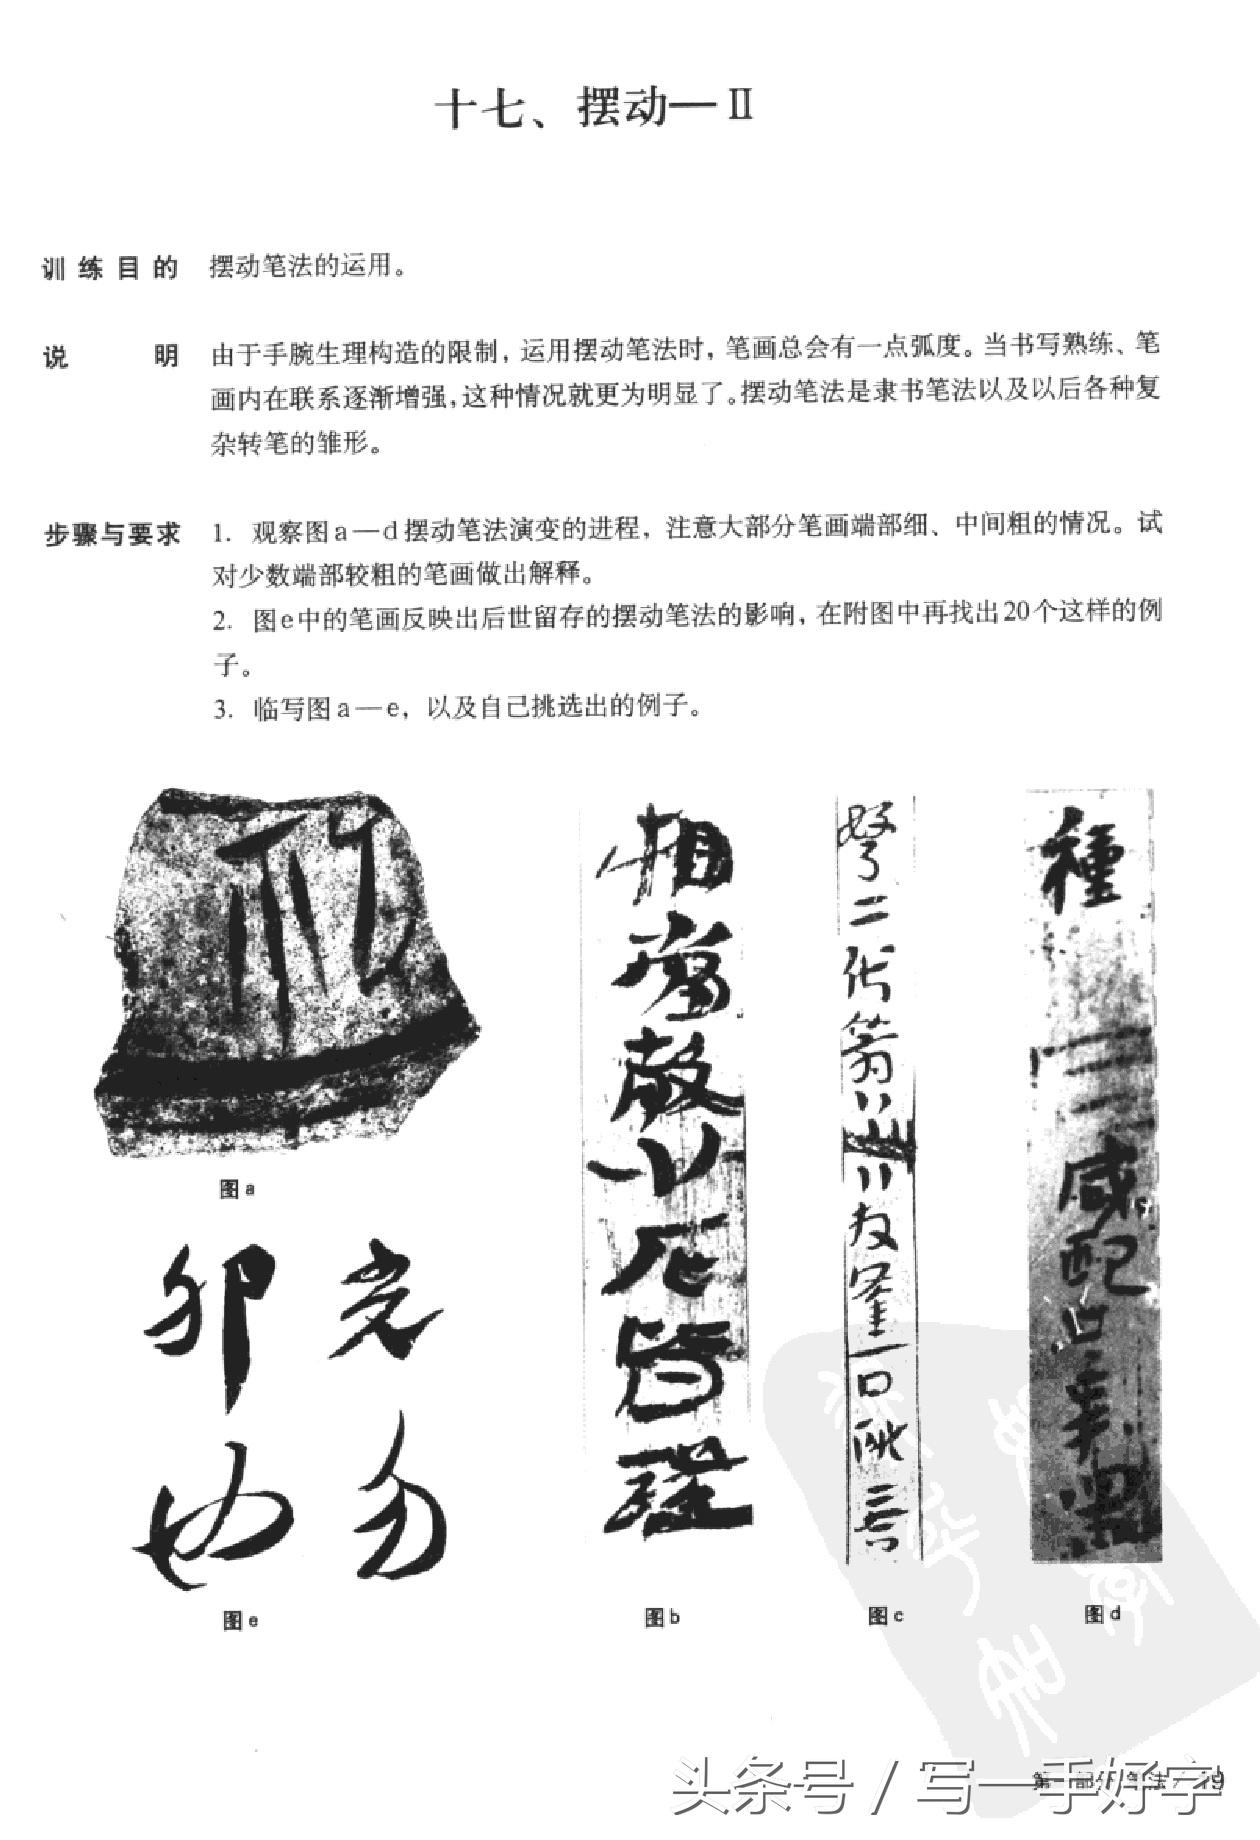 十七、摆动—Ⅱ
训练目的 摆动笔法的运用。
说 明 由于手腕生理构造的限制，运用摆动笔法时，笔画总会有一点弧度。当书写熟练、笔
画内在联系逐渐增强，这种情况就更为明显了。摆动笔法是隶书笔法以及以后各种复
杂转笔的雏形。
步骤与要求 1. 观察图a—d摆动笔法演变的进程，注意大部分笔画端部细、中间粗的情况。试
对少数端部较粗的笔画做出解释。
2. 图e中的笔画反映出后世留存的摆动笔法的影响，在附图中再找出20个这样的例
子。
3. 临写图a—e，以及自己挑选出的例子。
图a
卯 光
也 勿
图e
相
图b
二
图c
種
三
图d
第一部分 笔法 / 19
头条号 / 写一手好字